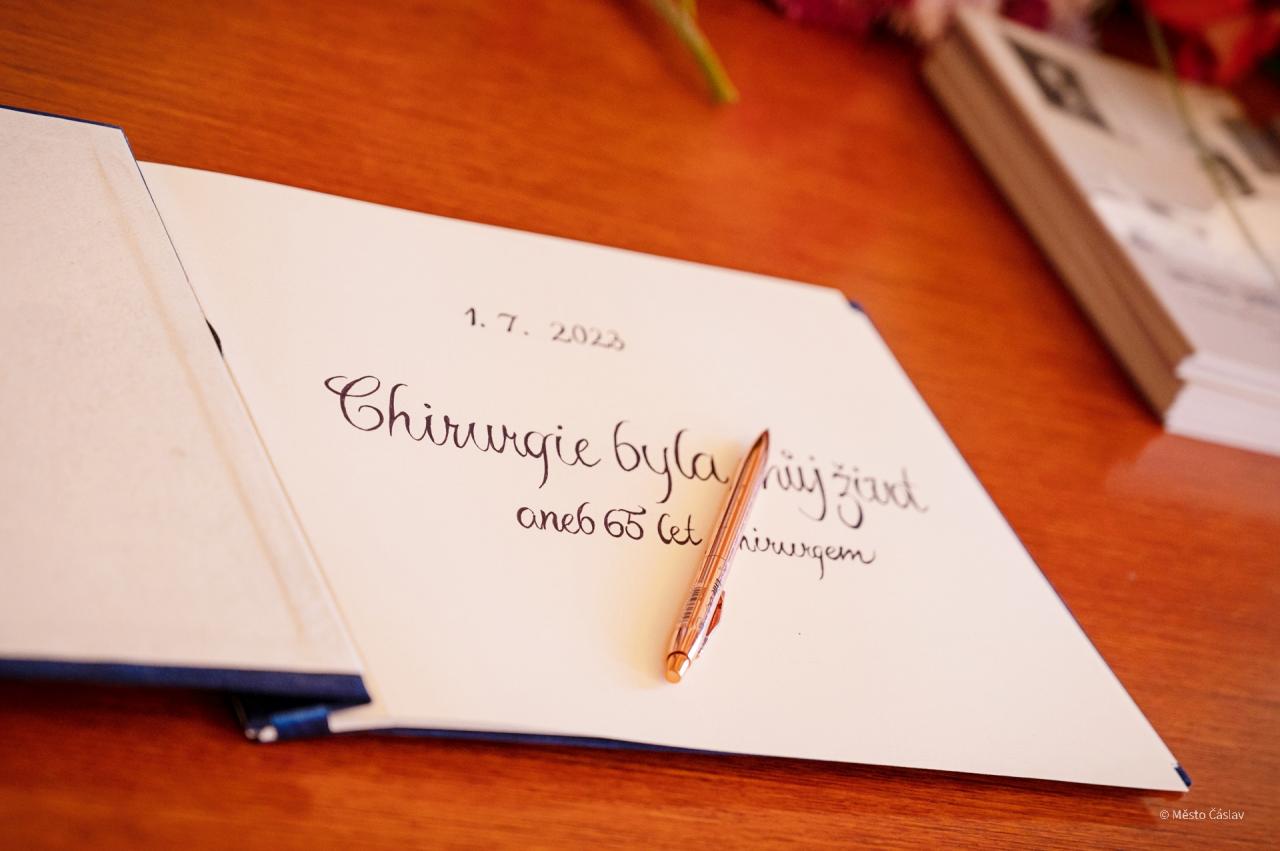 1. 7. 2023
Chirurgie byla můj život
aneb 65 let chirurgem
© Město Čáslav